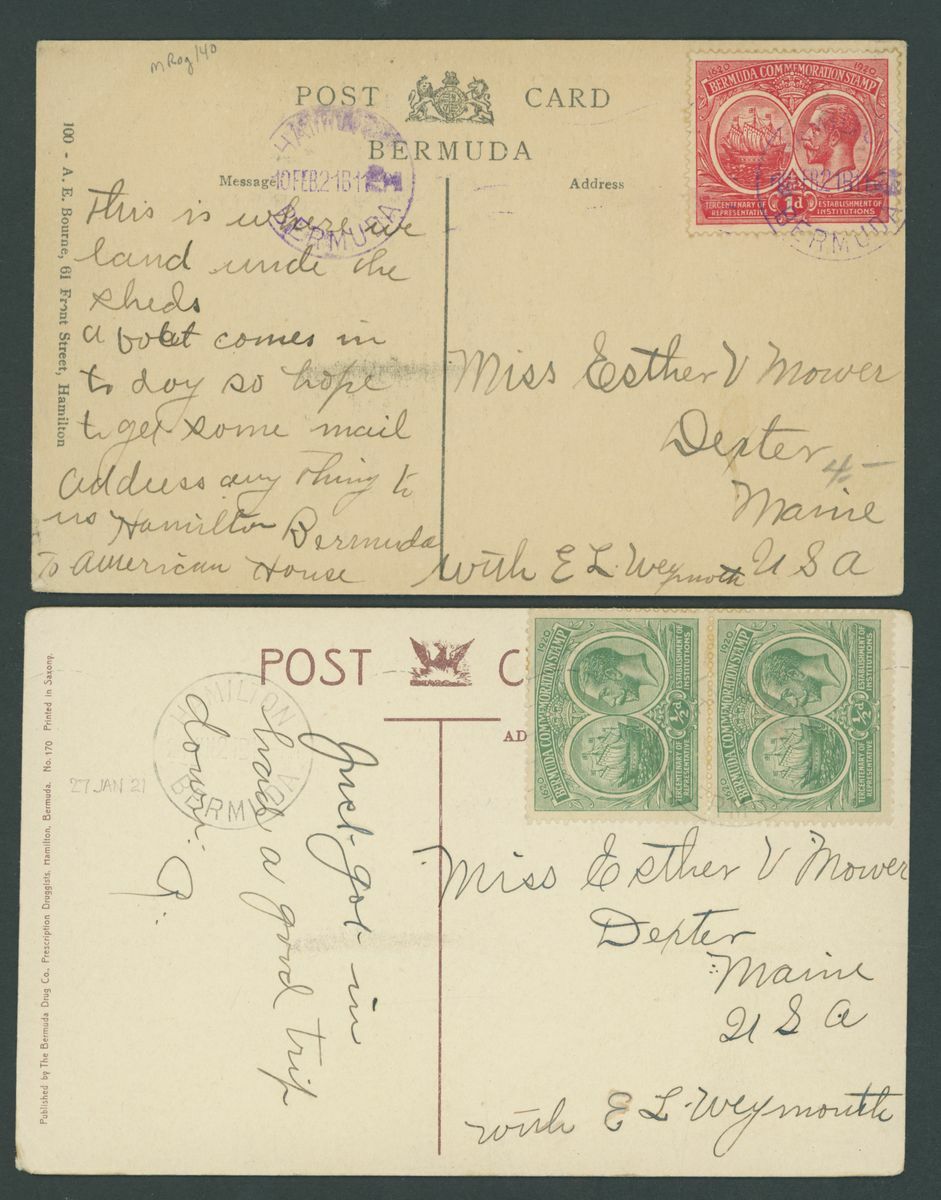 POST CARD
BERMUDA
Message
Address
100 - A. E. Bourne, 61 Front Street, Hamilton
10 FEB.21
BERMUDA
This is where we
land unde the
sheds
a boat comes in
to day so hope
to get some mail
address any thing to
us Hamilton Bermuda
To American House
1620 1920
BERMUDA COMMEMORATION STAMP
TERCENTENARY OF REPRESENTATIVE
1d
ESTABLISHMENT OF INSTITUTIONS
BERMUDA
Miss Esther V Mower
Dexter
4-
Maine
with E L Weymouth U S A
POST C
AD
Published by The Bermuda Drug Co., Prescription Druggists, Hamilton, Bermuda. No. 170 Printed in Saxony.
27 JAN 21
HAMILTON
BERMUDA
Just got in
had a good trip
down.
1620 1920
BERMUDA COMMEMORATION STAMP
TERCENTENARY OF REPRESENTATIVE
½d
ESTABLISHMENT OF INSTITUTIONS
1620 1920
BERMUDA COMMEMORATION STAMP
TERCENTENARY OF REPRESENTATIVE
½d
ESTABLISHMENT OF INSTITUTIONS
Miss Esther V Mower
Dexter
Maine
U S A
with E L Weymouth